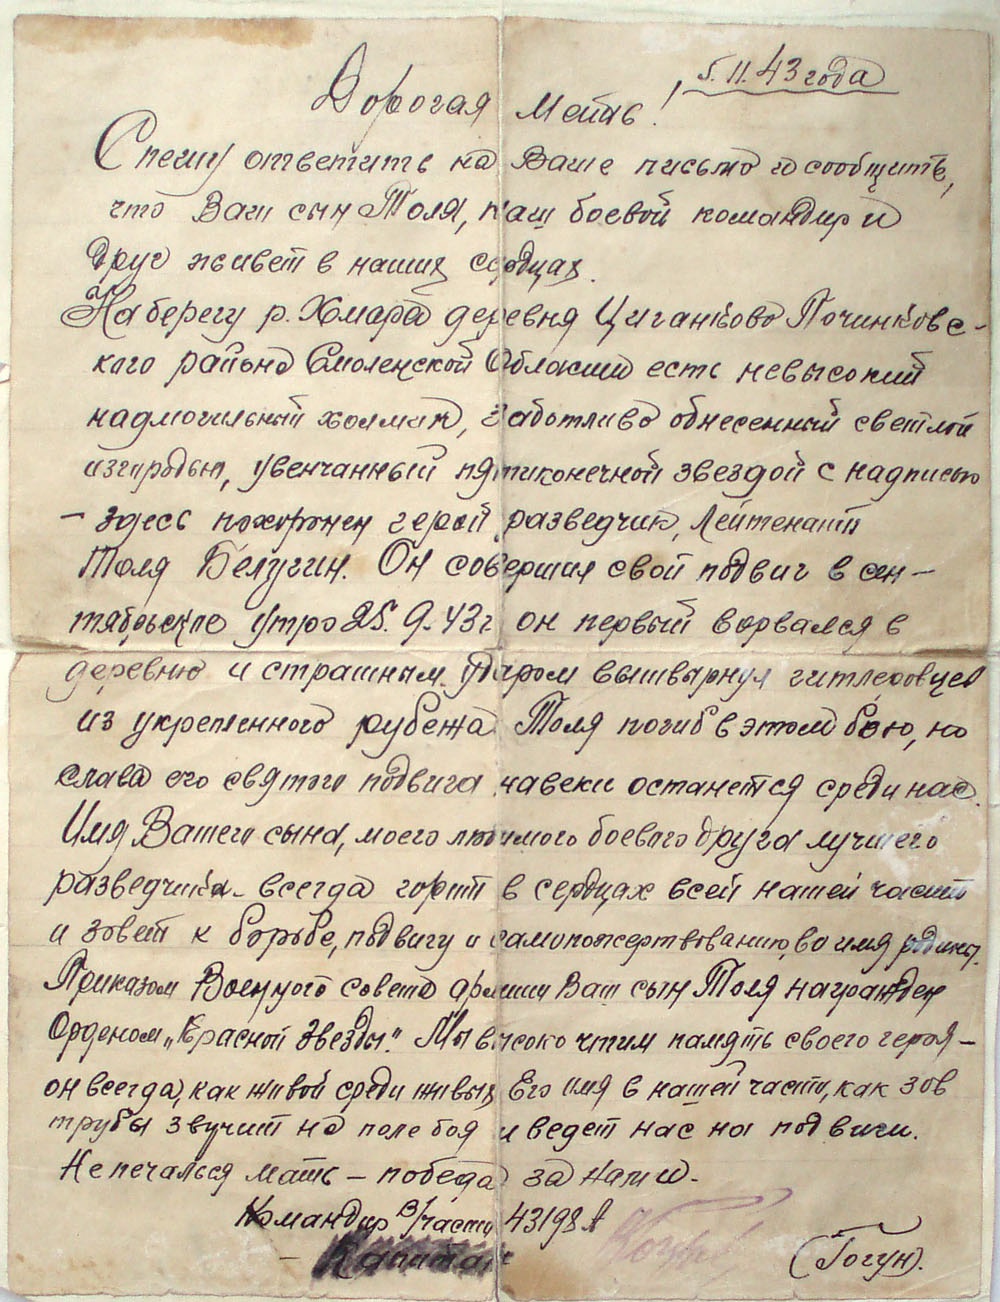 5.11.43 года
Дорогая Мать!
Спешу ответить на Ваше письмо и сообщить,
что Ваш сын Толя, наш боевой командир и
друг живет в наших сердцах.
На берегу р. Хмара деревня Циганково Починковс-
кого района Смоленской Области есть невысокий
надмогильный холмик, заботливо обнесенный светлой
изгородью, увенчанный пятиконечной звездой с надписью
– здесь похоронен герой разведчик, Лейтенант
Толя Белугин. Он совершил свой подвиг в сен-
тябрьское утро 25.9.43г. он первый ворвался в
деревню и страшным ударом вышвырнул гитлеровцев
из укрепленного рубежа Толя погиб в этом бою, но
слава его святого подвига навеки останется среди нас.
Имя Вашего сына, моего любимого боевого друга лучшего
разведчика – всегда горит в сердцах всей нашей части
и зовет к борьбе, подвигу и самопожертвованию, во имя родины.
Приказом Военного совета армии Ваш сын Толя награжден
Орденом „Красной Звезды." Мы высоко чтим память своего героя –
он всегда, как живой среди живых Его имя в нашей части, как зов
трубы звучит на поле боя и ведет нас на подвиги.
Не печалься мать – победа за нами.
Командир в/части 43198 А
– Капитан (Гогун).